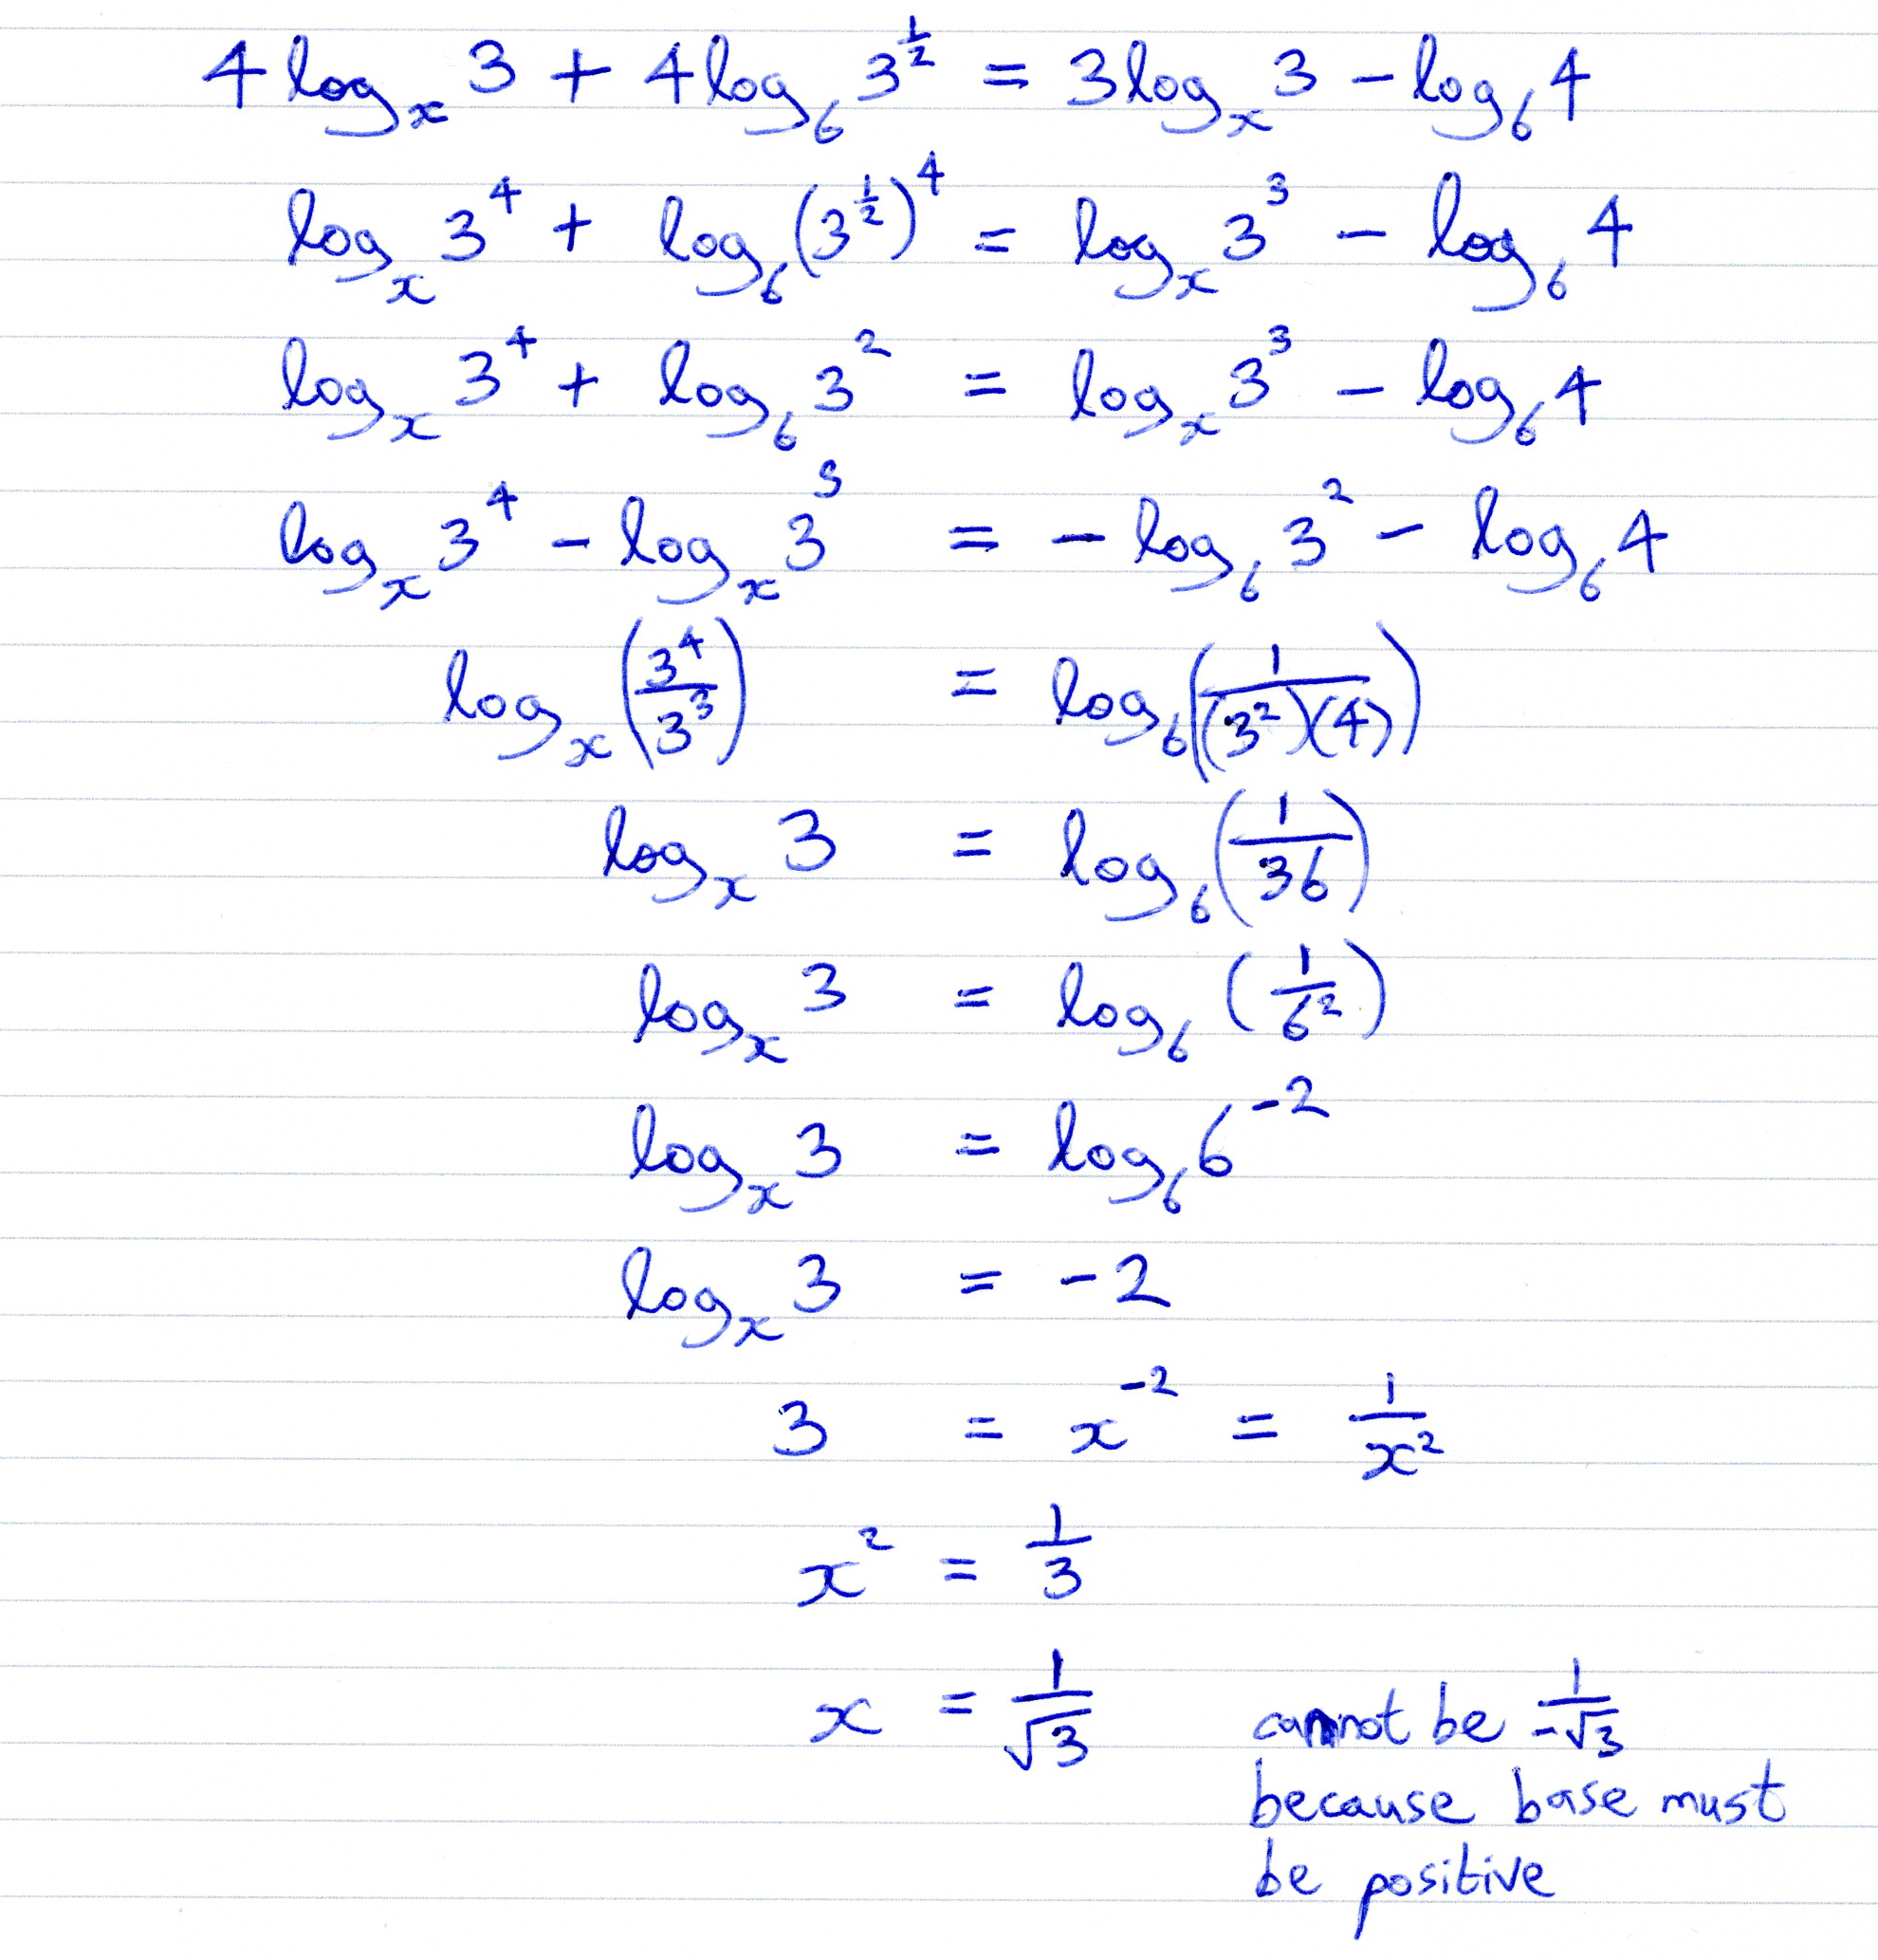 4 logₓ 3 + 4 log₆ 3^(1/2) = 3 logₓ 3 - log₆ 4
logₓ 3⁴ + log₆ (3^(1/2))⁴ = logₓ 3³ - log₆ 4
logₓ 3⁴ + log₆ 3² = logₓ 3³ - log₆ 4
logₓ 3⁴ - logₓ 3³ = - log₆ 3² - log₆ 4
logₓ (3⁴/3³) = log₆ (1/((3²)(4)))
logₓ 3 = log₆ (1/36)
logₓ 3 = log₆ (1/6²)
logₓ 3 = log₆ 6⁻²
logₓ 3 = -2
3 = x⁻² = 1/x²
x² = 1/3
x = 1/√3 cannot be 1/-√3
because base must
be positive